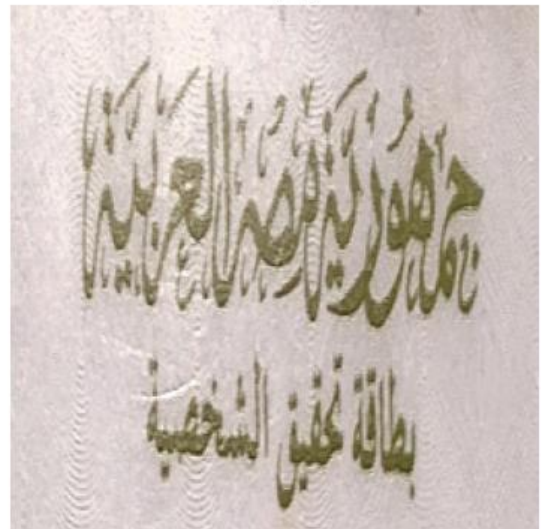 جمهورية مصر العربية
بطاقة تحقيق الشخصية